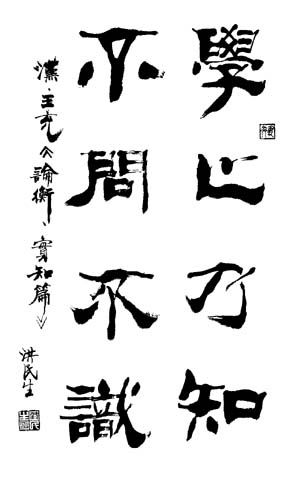 學之乃知
不問不識
漢·王充《論衡·實知篇》
洪民生